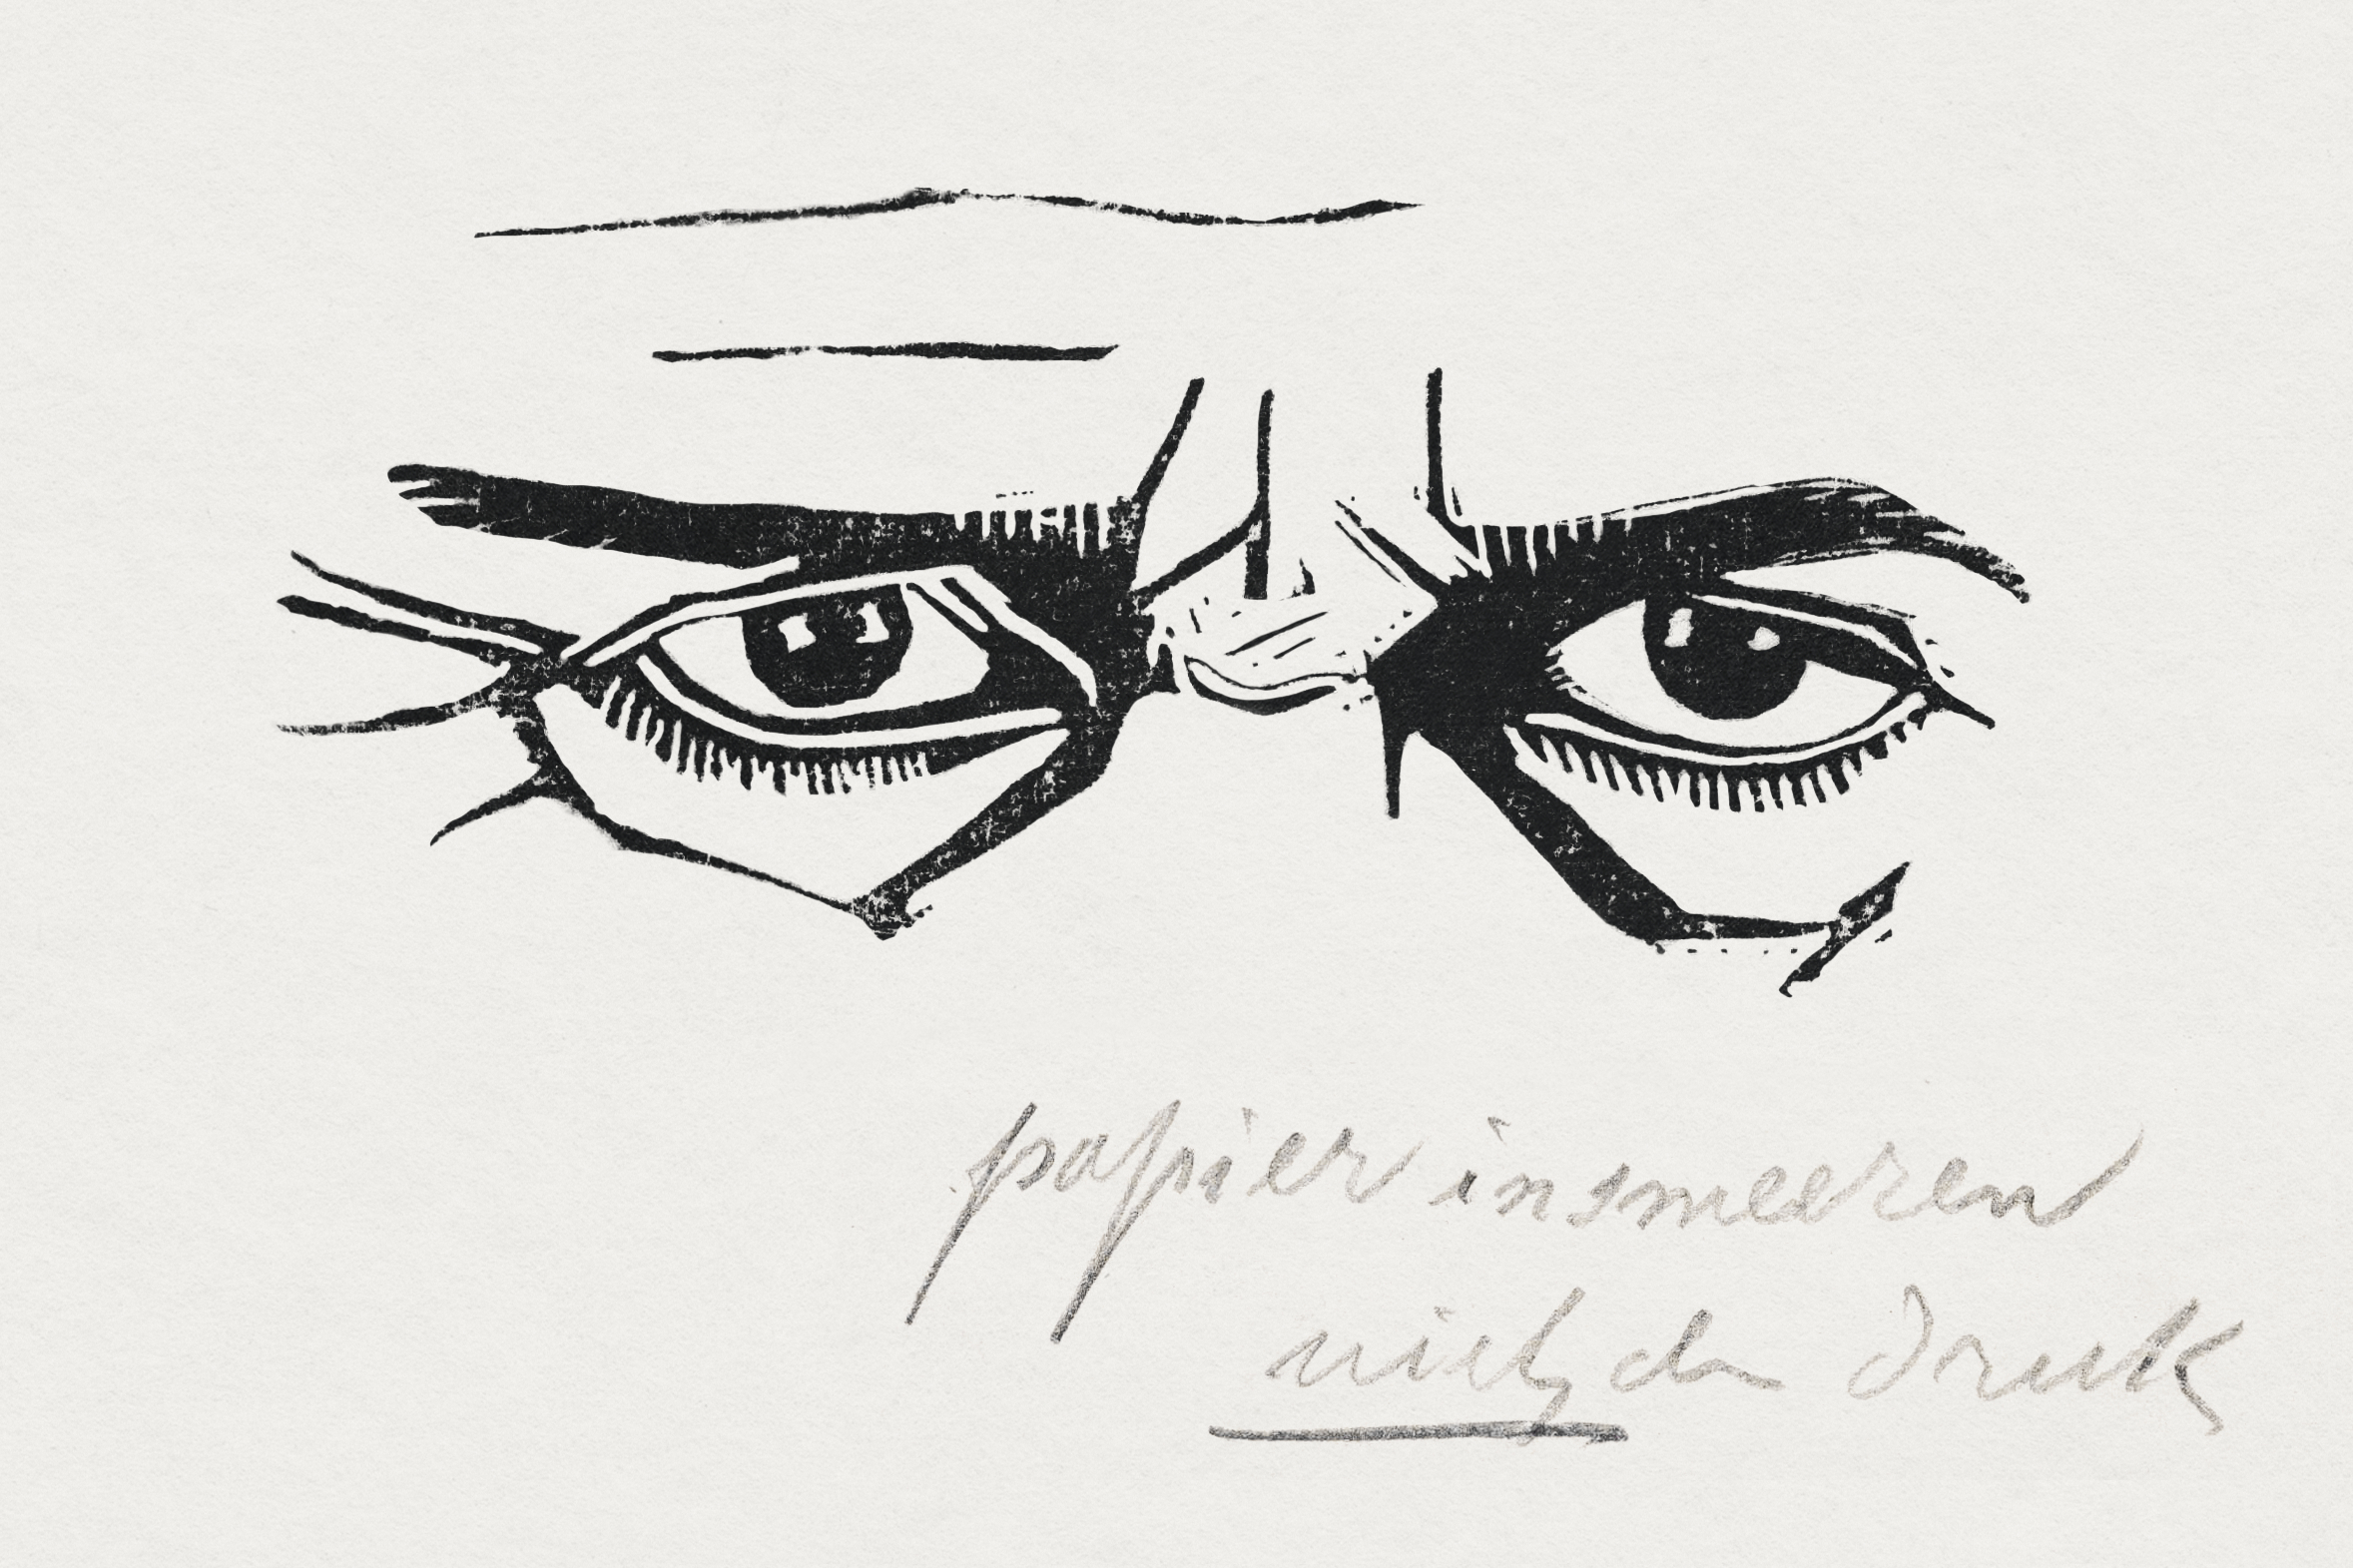 papier insmeeren
niet de druk